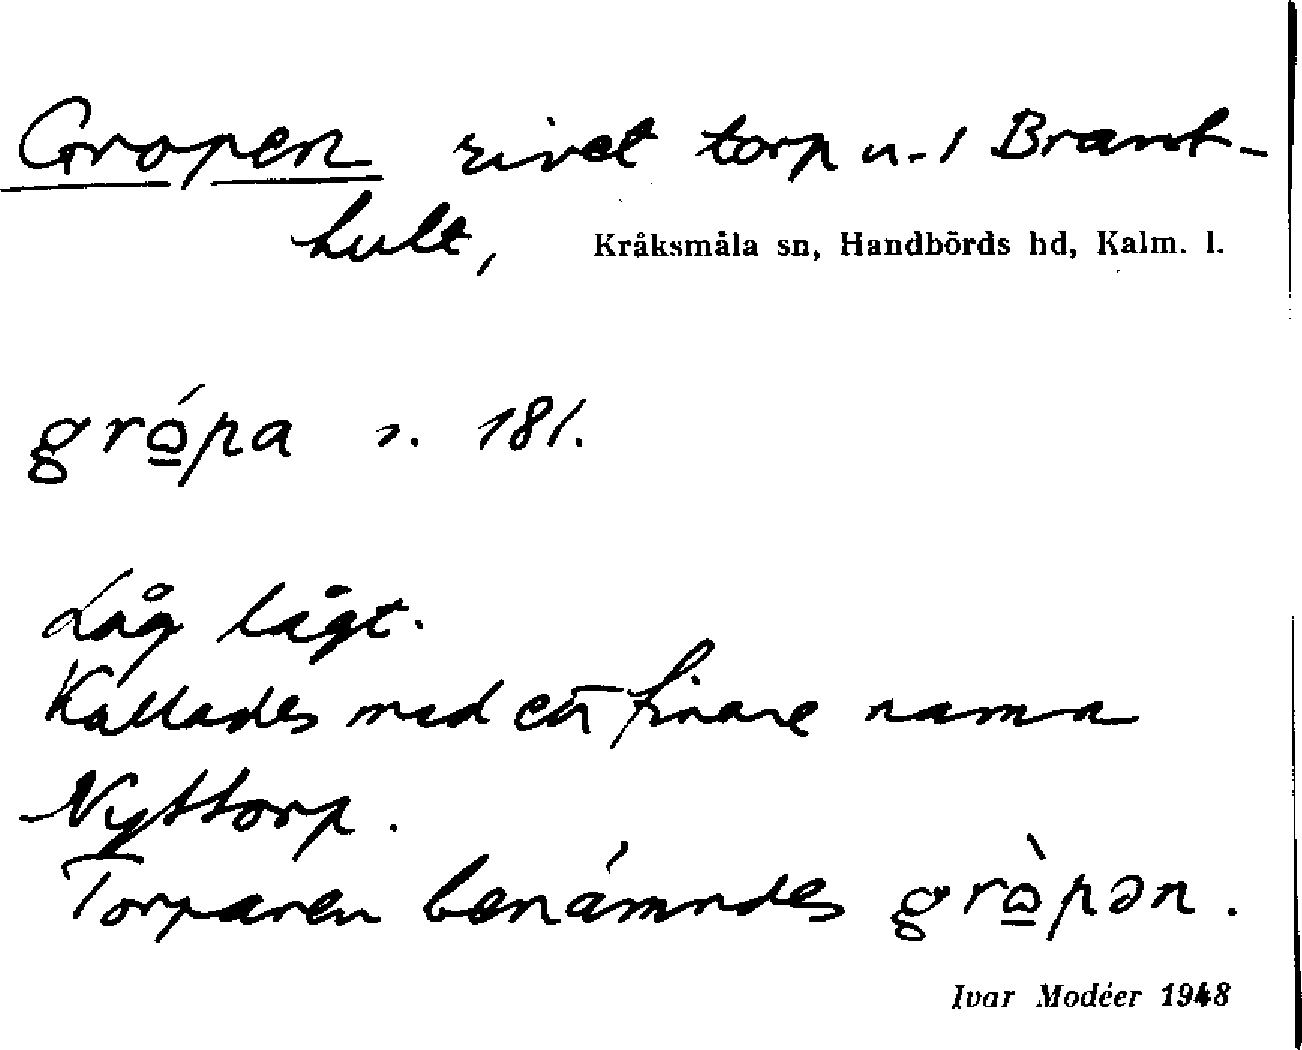 Gropen rivet torp u. 1 Brant-
hult, Kråksmåla sn, Handbörds hd, Kalm. l.
grópa s. 181.
Låg lågt.
Kallades med ett finare namn
Nyttorp.
Torparen benämndes gròpən.
Ivar Modéer 1948